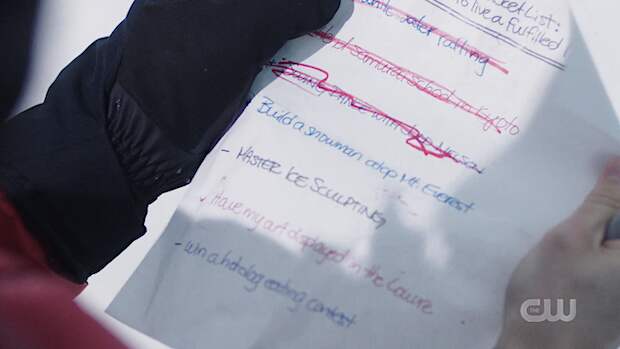 cket List:
to live a fulfilled
white water rafting
samurai school in Kyoto
dance with
Build a snowman atop Mt. Everest
- MASTER ICE SCULPTING
Have my art displayed in the Louvre
- win a hotdog eating contest
CW